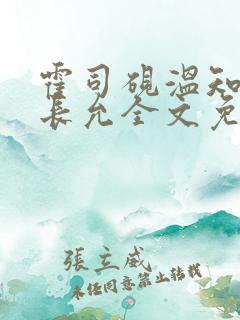 霍司砚温知
長允全文免
張立威
未经同意禁止转载